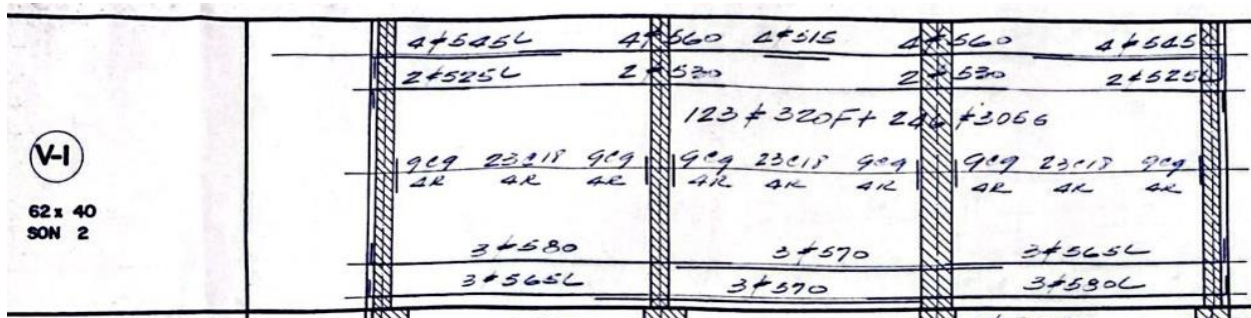 4#545L 4#560 4#515 4#560 4#545
2#525L 2#530 2#530 2#525L
123#320F+ 246#305G
V-1
9c9 23c18 9c9 9c9 23c18 9c9 9c9 23c18 9c9
4R 4R 4R 4R 4R 4R 4R 4R 4R
62 x 40
SON 2
3#580 3#570 3#565L
3#565L 3#570 3#580L